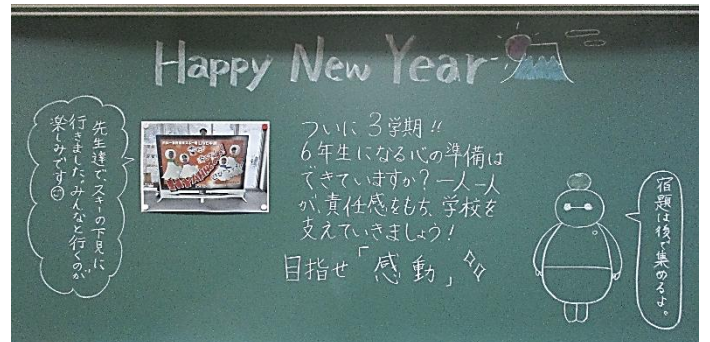 Happy New Year
先生達で、スキーの下見に
行きました。みんなと行くのが
楽しみです
ついに3学期!!
6年生になる心の準備は
できていますか?一人一人
が、責任感をもち、学校を
支えていきましょう!
目指せ「感動」
宿題は後で集めるよ。